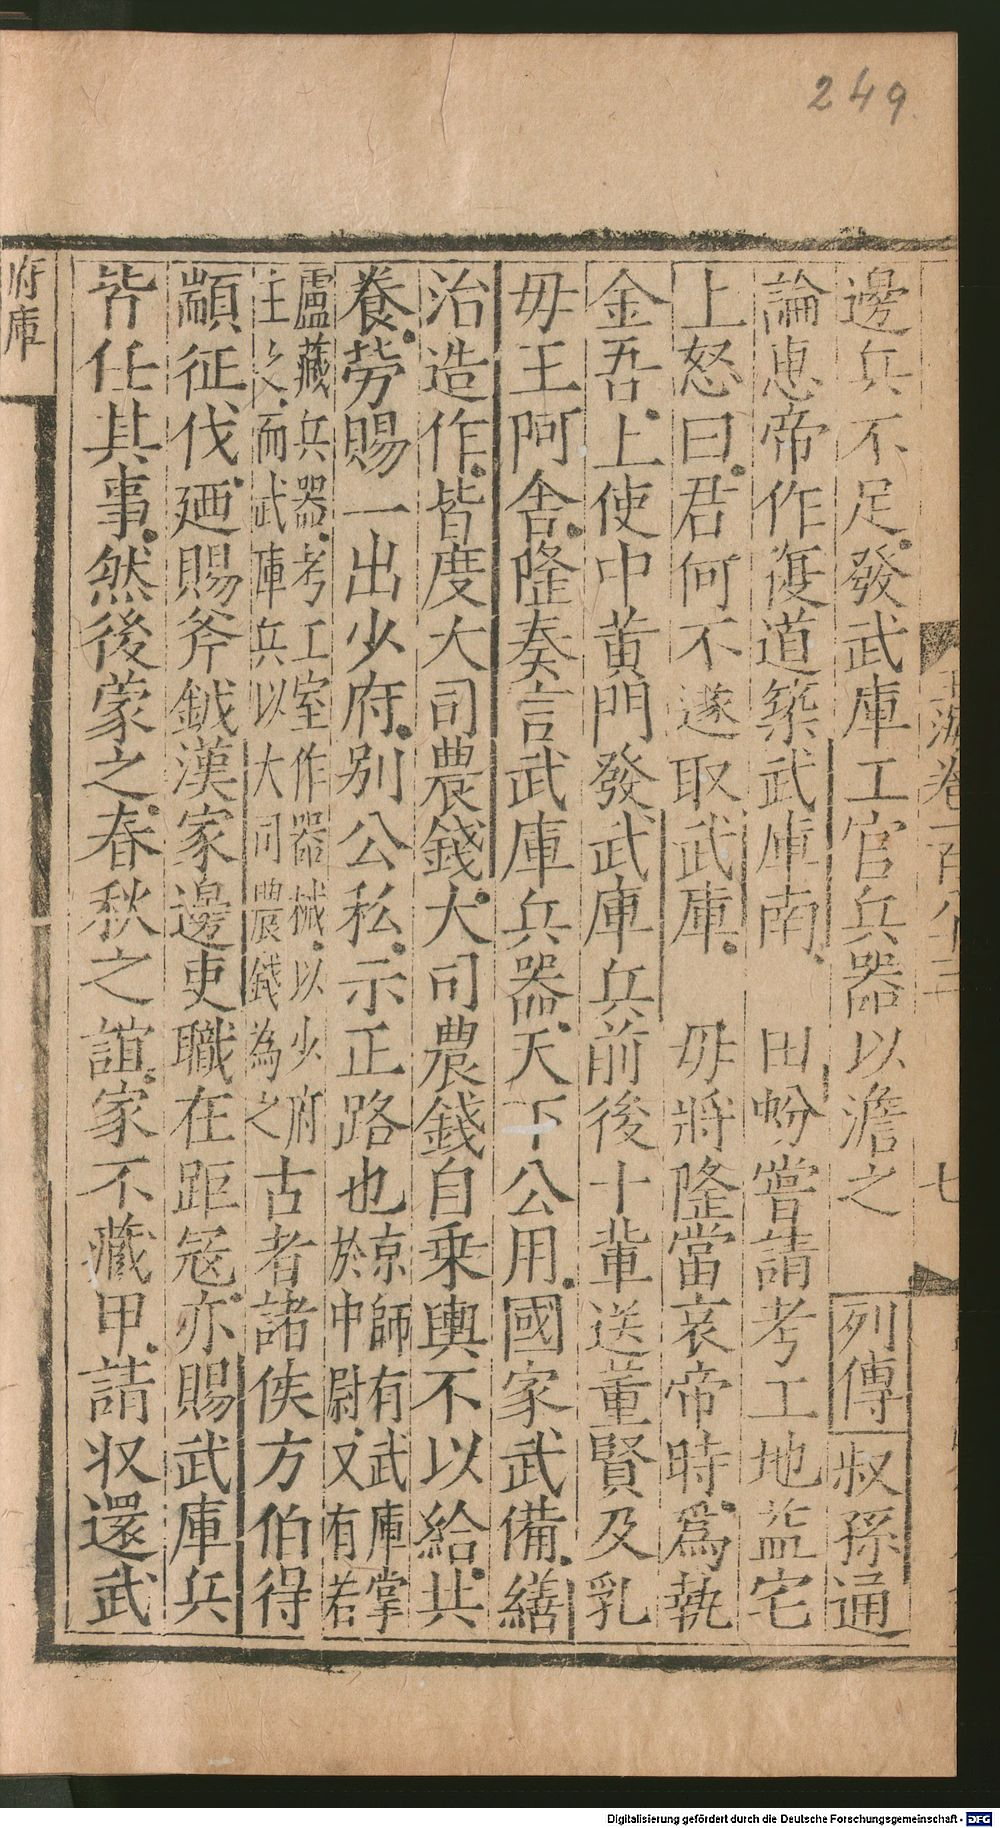 249
邊兵不足發武庫工官兵器以澹之　列傳叔孫通
論惠帝作復道築武庫南　田蚡嘗請考工地益宅
上怒曰君何不遂取武庫　毋將隆當哀帝時為執
金吾上使中黃門發武庫兵前後十輩送董賢及乳
毋王阿舍隆奏言武庫兵器天下公用國家武備繕
治造作皆度大司農錢大司農錢自乘輿不以給共
養勞賜一出少府別公私示正路也京師有武庫掌
於中尉又有若
盧藏兵器考工室作器械以少府
主之而武庫兵以大司農錢為之古者諸侯方伯得
顓征伐廼賜斧鉞漢家邊吏職在距冦亦賜武庫兵
皆任其事然後蒙之春秋之誼家不藏甲請收還武
府庫
玉海卷一百八十三
七
Digitalisierung gefördert durch die Deutsche Forschungsgemeinschaft - DFG